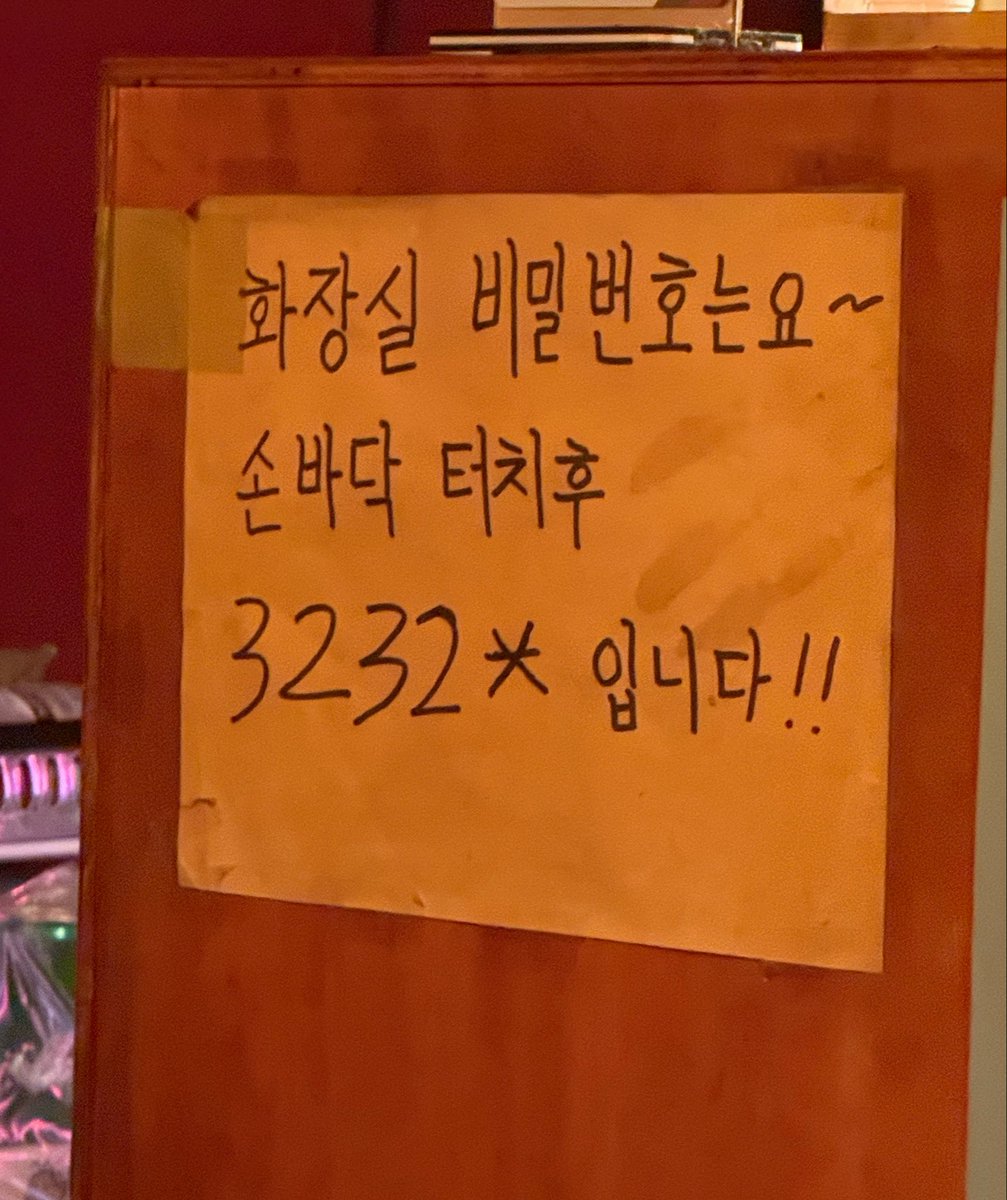 화장실 비밀번호는요~
손바닥 터치후
3232* 입니다!!